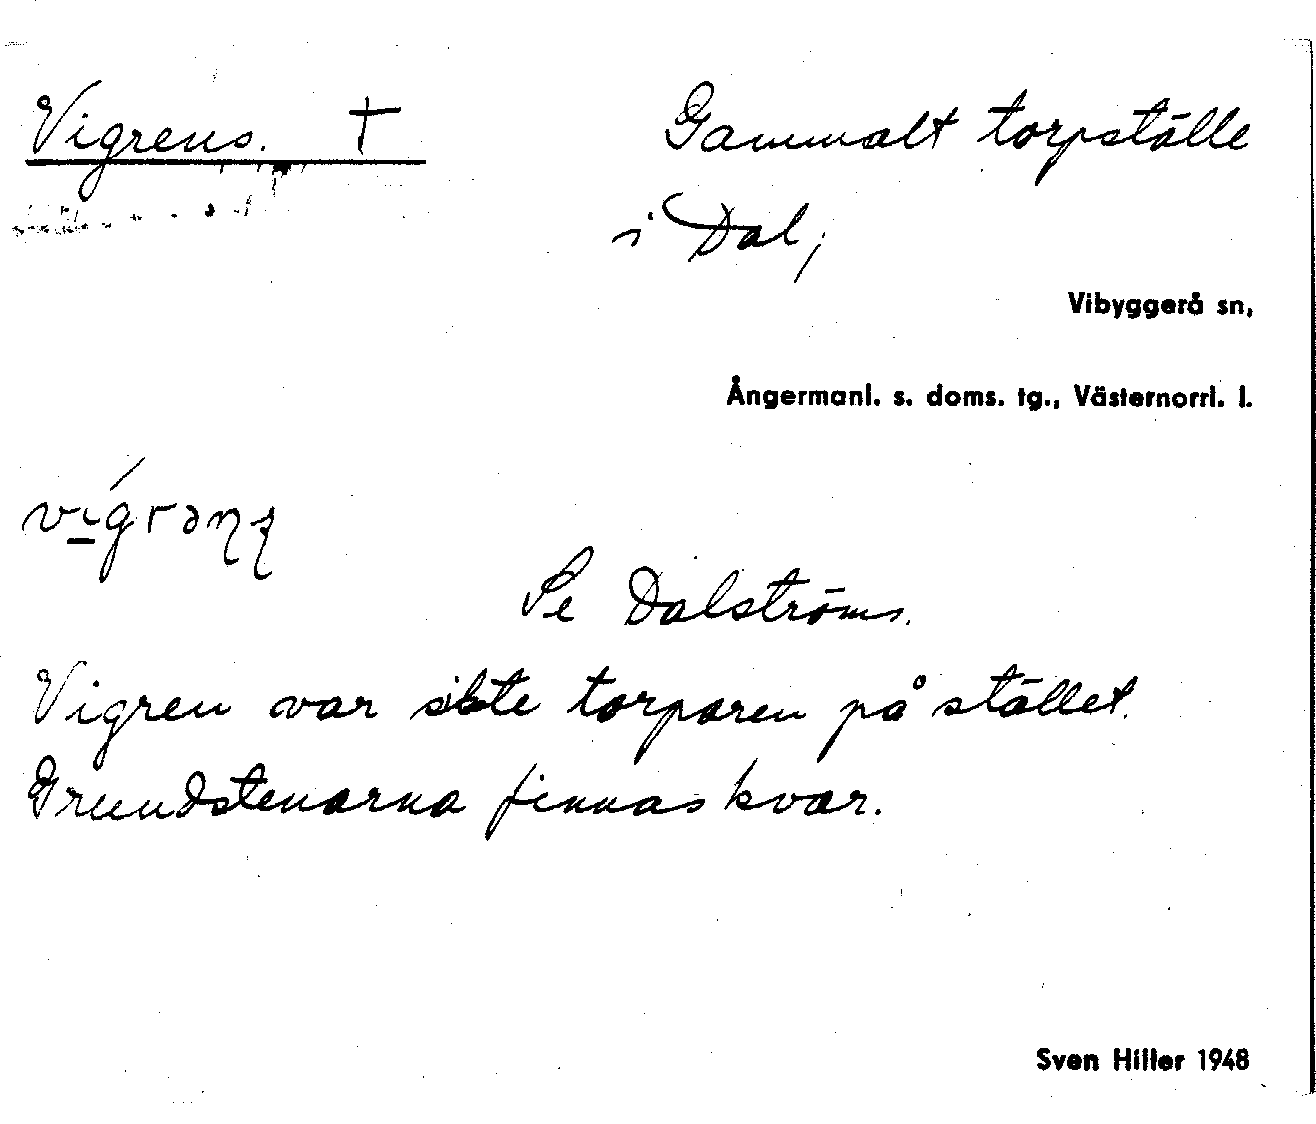 Vigrens. †
Gammalt torpställe
i Dal,
Vibyggerå sn,
Ångermanl. s. doms. tg., Västernorrl. l.
Se Dalströms.
Vigren var siste torparen på stället.
Grundstenarna finnas kvar.
Sven Hiller 1948